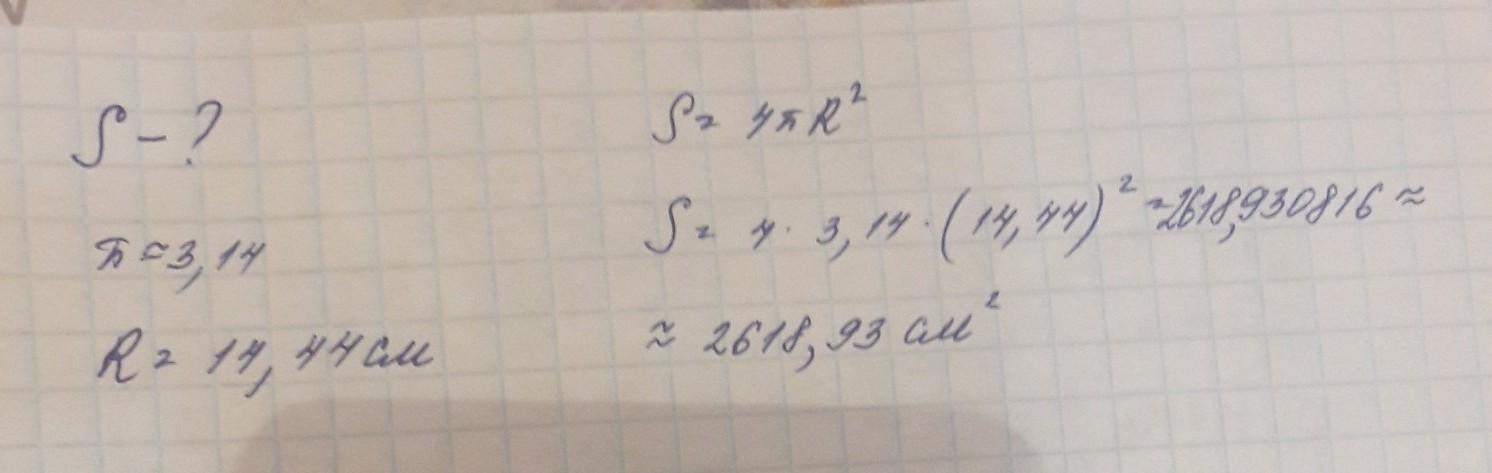 S - ?
π ≈ 3,14
R = 14,44 см
S = 4πR²
S = 4 · 3,14 · (14,44)² = 2618,930816 ≈
≈ 2618,93 см²